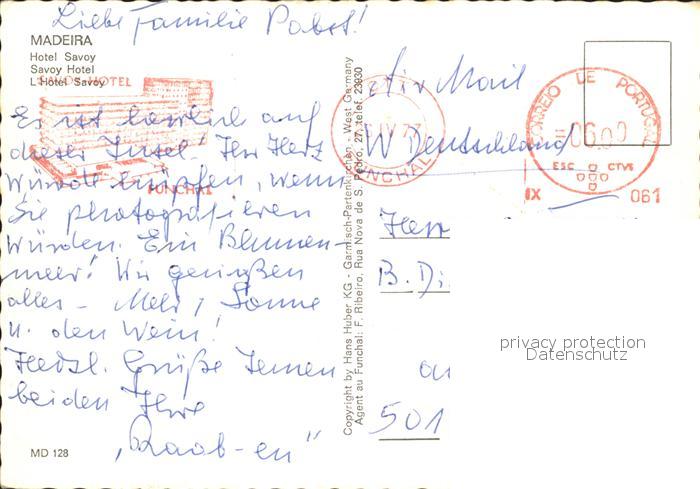 Liebe Familie Pabst!
MADEIRA
Hotel Savoy
Savoy Hotel
L'Hotel Savoy
SAVOY HOTEL
FUNCHAL
Es ist herrlich auf
dieser Insel! Ihr Herz
würde hüpfen, wenn
Sie photografieren
würden. Ein Blumen-
meer! Wir genießen
alles - Meer, Sonne
u. den Wein!
Herzl. Grüße Ihnen
beiden Ihre
"Raab-en"
MD 128
Copyright by Hans Huber KG · Garmisch-Partenkirchen · West Germany
Agent au Funchal: F. Ribeiro, Rua Nova de S. Pedro, 27, telef. 23930
FUNCHAL
CORREIO DE PORTUGAL
06.00
ESC CTVS
IX 061
Air Mail
W Deutschland
Herr
B. Di
an
501
privacy protection
Datenschutz